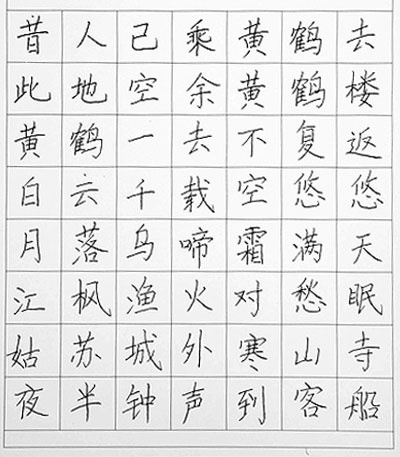 昔人己乘黄鹤去
此地空余黄鹤楼
黄鹤一去不复返
白云千载空悠悠
月落乌啼霜满天
江枫渔火对愁眠
姑苏城外寒山寺
夜半钟声到客船